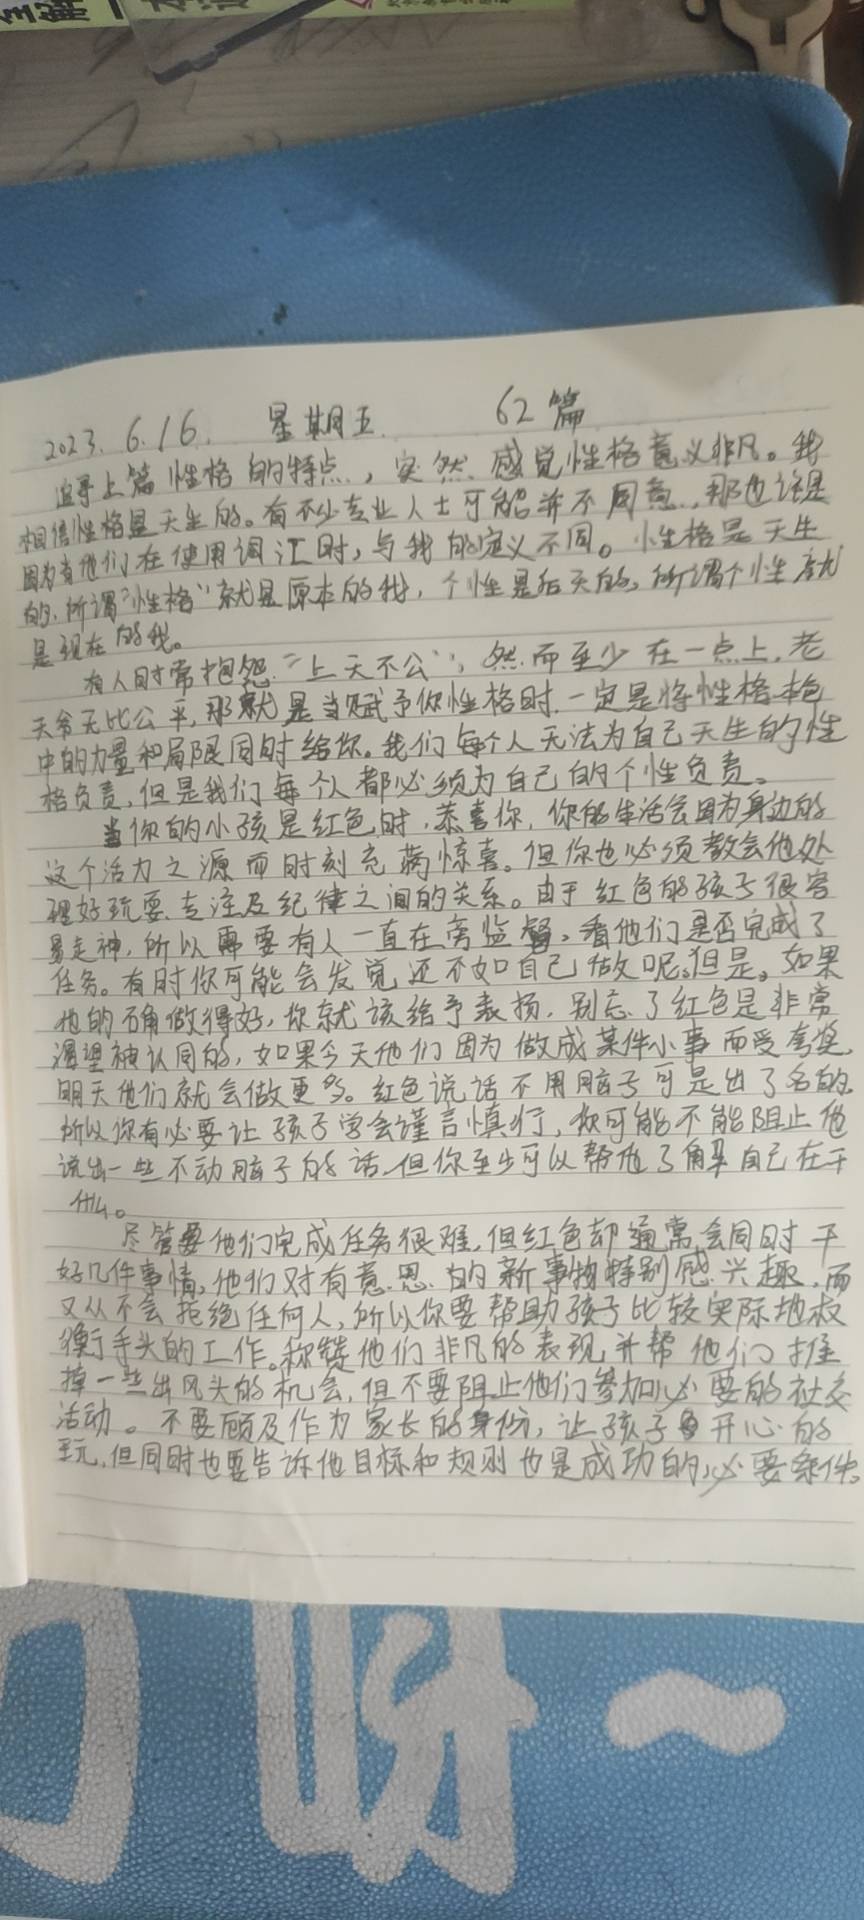 2023. 6.16. 星期五. 62篇
追寻上篇性格的特点,突然感觉性格意义非凡。我
相信性格是天生的。有不少专业人士可能并不同意,那也许是
因为他们在使用词汇时,与我的定义不同。性格是天生
的,所谓“性格”就是原本的我,个性是后天的,所谓个性就
是现在的我。
有人时常抱怨“上天不公”,然而至少在一点上,老
天爷无比公平,那就是当赋予你性格时,一定是将性格本色
中的力量和局限同时给你。我们每个人无法为自己天生的性
格负责,但是我们每个人都必须为自己的个性负责。
当你的小孩是红色时,恭喜你,你的生活会因为身边的
这个活力之源而时刻充满惊喜。但你也必须教会他处
理好玩耍、专注及纪律之间的关系。由于红色的孩子很容
易走神,所以需要有人一直在旁监督,看他们是否完成了
任务。有时你可能会发觉还不如自己做呢。但是,如果
他的确做得好,你就该给予表扬,别忘了红色是非常
渴望被认同的,如果今天他们因为做成某件小事而受夸奖,
明天他们就会做更多。红色说话不用脑子可是出了名的,
所以你有必要让孩子学会谨言慎行,你可能不能阻止他
说出一些不动脑子的话,但你至少可以帮他了解自己在干
什么。
尽管要他们完成任务很难,但红色却通常会同时干
好几件事情,他们对有意思的新事物特别感兴趣,而
又从不会拒绝任何人,所以你要帮助孩子比较实际地权
衡手头的工作。称赞他们非凡的表现并帮他们推
掉一些出风头的机会,但不要阻止他们参加必要的社交
活动。不要顾及作为家长的身份,让孩子开心的
玩,但同时也要告诉他目标和规则也是成功的必要条件。
呀一